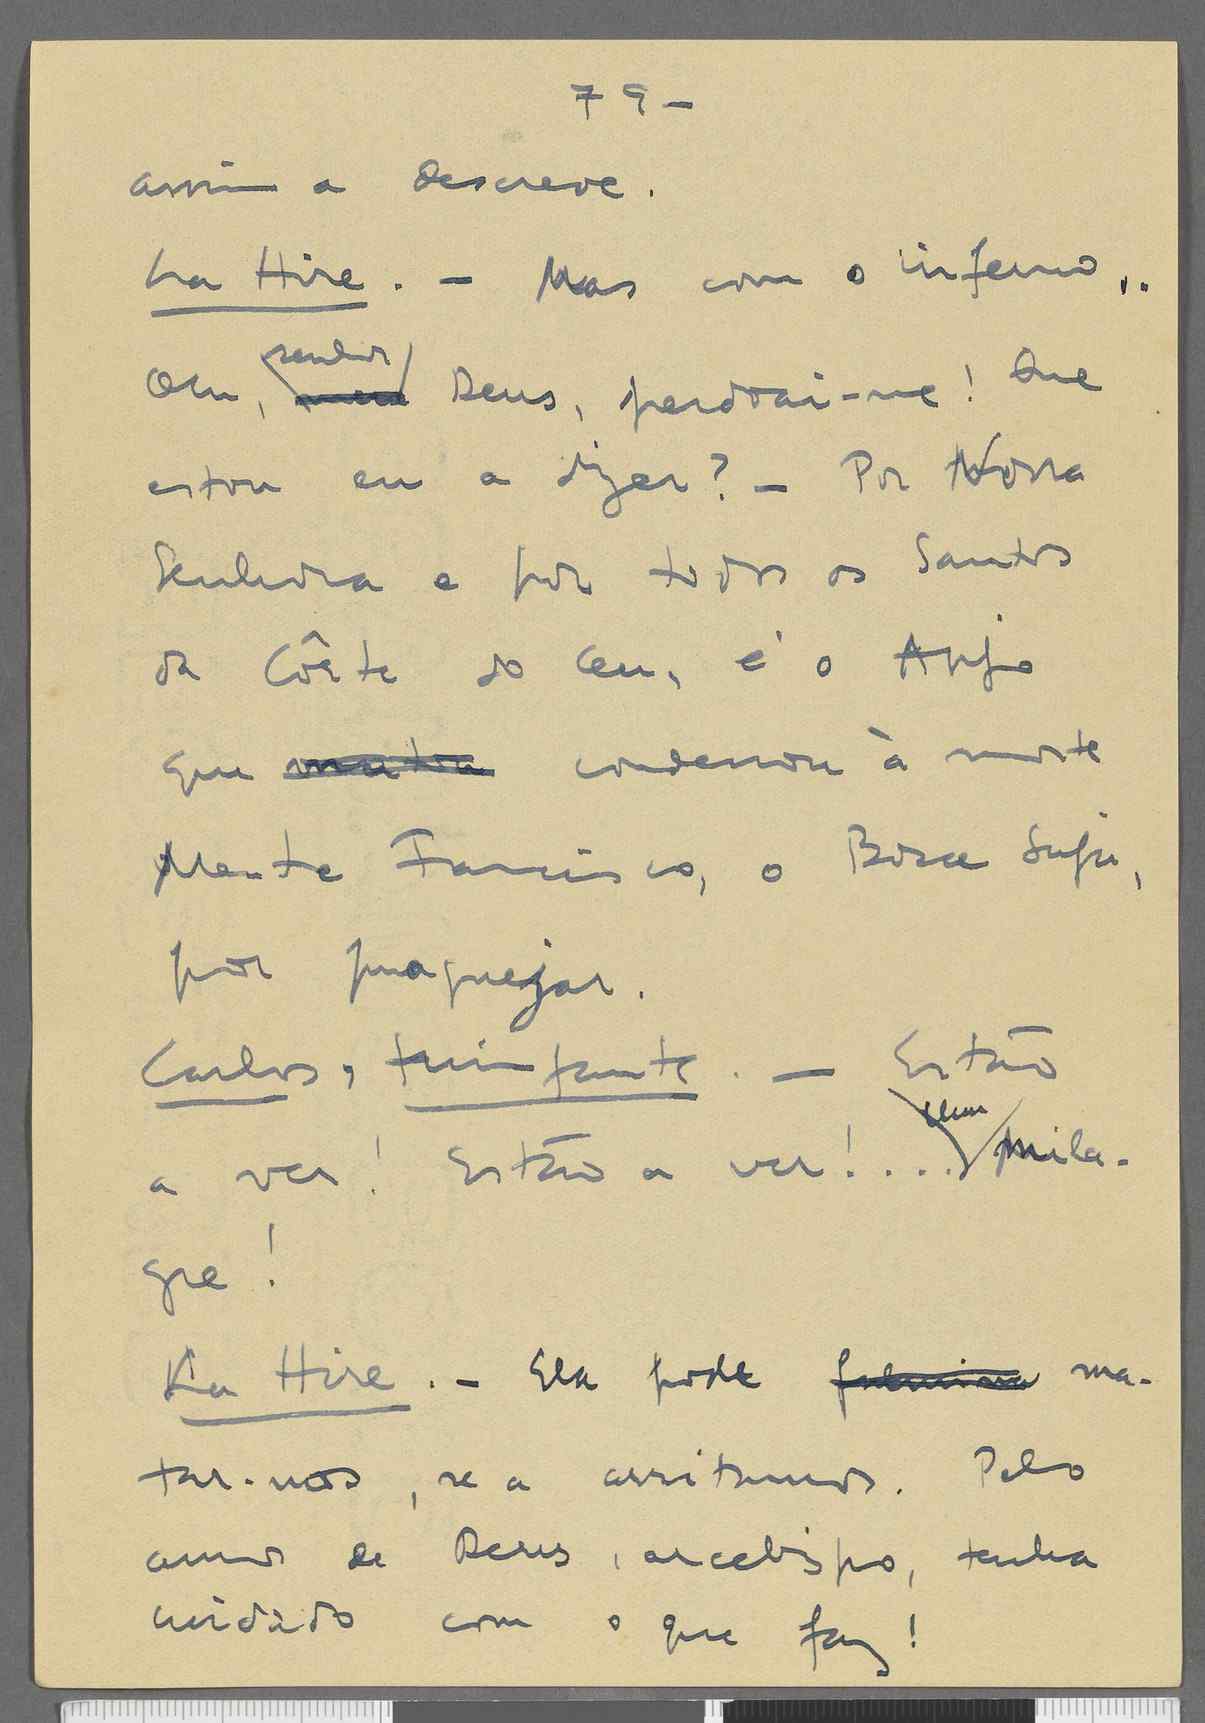 79-
assim a descreve.
La Hire. - Mas com o inferno...
senhor
Oh, meu Deus, perdoai-me! Que
estou eu a dizer? - Por Nossa
Senhora e por todos os Santos
da Côrte do Ceu, é o Anjo
que matou condenou à morte
Mente Francisco, o Boca Suja,
por praguejar.
Carlos, triunfante. - Estão
a ver! Estão a ver!.... Mila-
gre!
La Hire. - Ela pode fulminar ma-
tar-nos, se a irritamos. Pelo
amor de Deus, arcebispo, tenha
cuidado com o que faz!